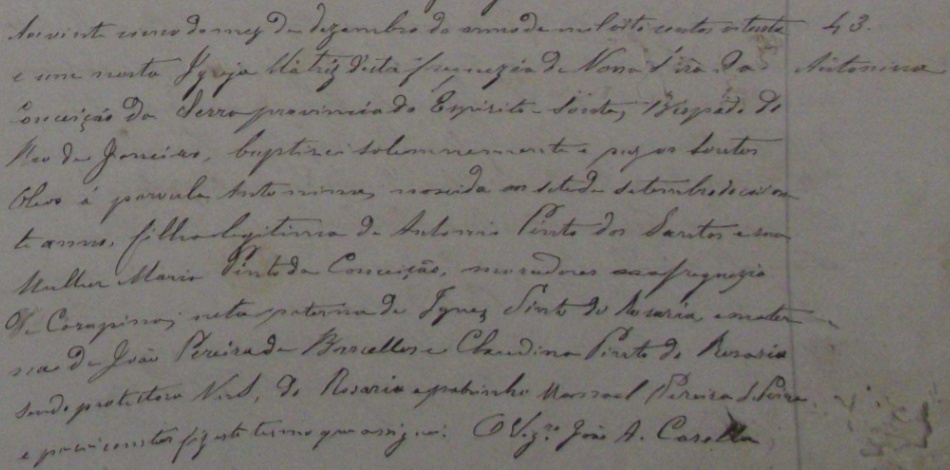 Aos vinte e cinco do mez de dezembro do anno de mil oito centos oitenta
e um nesta Igreja Matriz desta freguezia de Nossa Snra. da
Conceição da Serra provincia do Espirito-Santo, Bispado do
Rio de Janeiro, baptizei solemnemente e puz os santos
Oleos á parvula Antonina, nascida aos sete de setembro do corren
te anno, filha legitima de Antonio Pinto dos Santos e sua
Mulher Maria Pinto da Conceição, moradores na freguezia
De Carapina; neta paterna de Ignez Pinto do Rosario, e mater
na de João Pereira de Barcellos e Claudina Pinto do Rosario
sendo protectora N. S. do Rosario e padrinho Manoel Pereira
e para constar fiz este termo que assigno. O Vigr.o João A. Casella
43.
Antonina